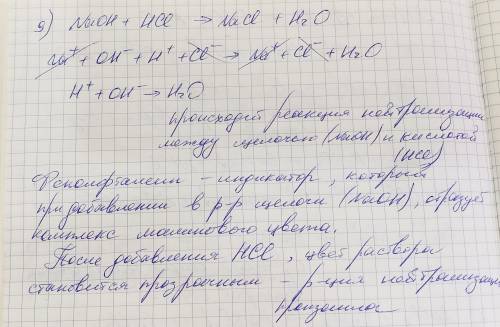 д) NaOH + HCl → NaCl + H₂O
Na⁺ + OH⁻ + H⁺ + Cl⁻ → Na⁺ + Cl⁻ + H₂O
H⁺ + OH⁻ → H₂O
происходит реакция нейтрализации
между щелочью (NaOH) и кислотой
(HCl)
Фенолфталеин – индикатор, который
при добавлении в р-р щелочи (NaOH), образует
комплекс малинового цвета.
После добавления HCl, цвет раствора
становится прозрачным – р-ция нейтрализации
произошла